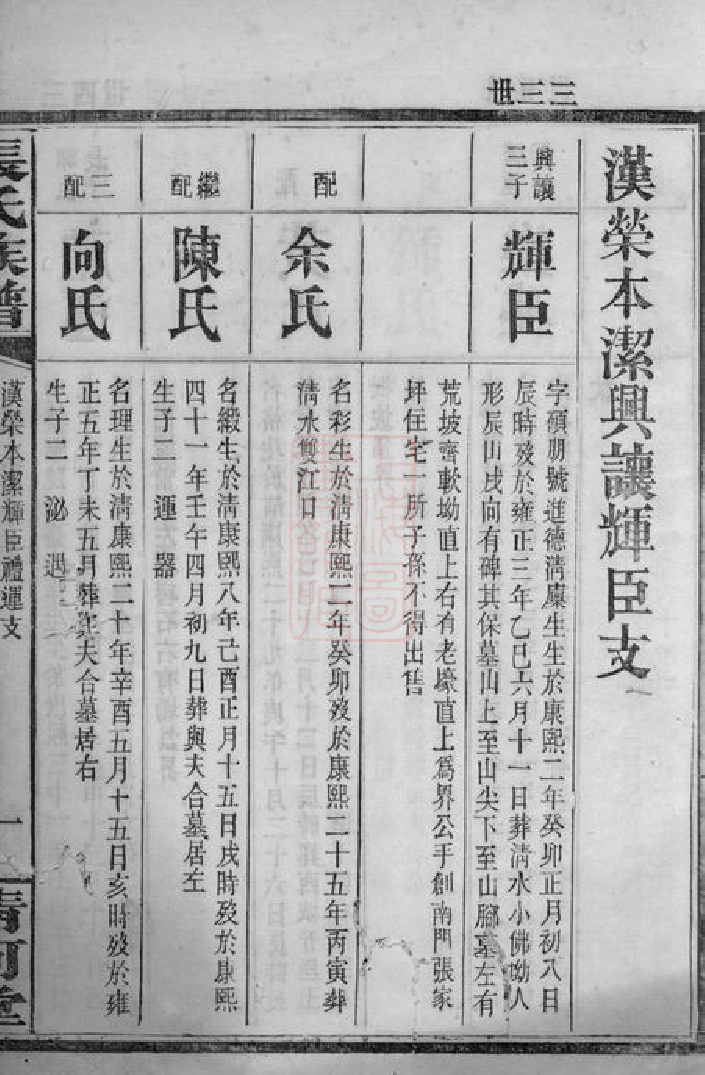 三三世
漢榮本潔興讓輝臣支
興讓
三子
輝臣
字碩朋號進德清廩生生於康熙二年癸卯正月初八日
辰時歿於雍正三年乙巳六月十一日葬清水小佛坳人
形辰山戌向有碑其保墓山上至山尖下至山腳墓左有
荒坡齊軟坳直上右有老壕直上爲界公手創南門張家
坪住宅一所子孫不得出售
配
余氏
名彩生於清康熙二年癸卯歿於康熙二十五年丙寅葬
清水雙江口
繼
配
陳氏
名緞生於清康熙八年己酉正月十五日戌時歿於康熙
四十一年壬午四月初九日葬與夫合墓居左
生子二 運 器
三
配
向氏
名理生於清康熙二十年辛酉五月十五日亥時歿於雍
正五年丁未五月葬 夫合墓居右
生子二 泌 遇
張氏族譜
漢榮本潔輝臣禮運支
一
清河堂